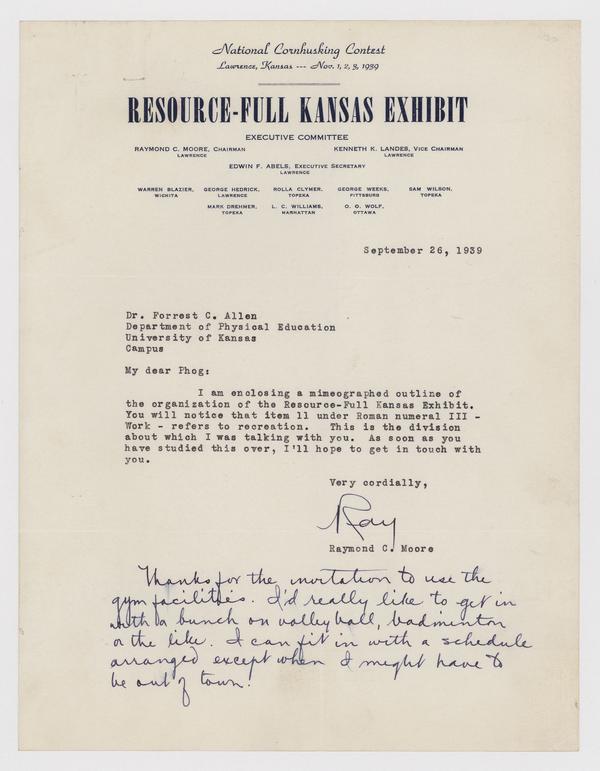 National Cornhusking Contest
Lawrence, Kansas --- Nov. 1, 2, 3, 1939
RESOURCE-FULL KANSAS EXHIBIT
EXECUTIVE COMMITTEE
RAYMOND C. MOORE, CHAIRMAN KENNETH K. LANDES, VICE CHAIRMAN
LAWRENCE LAWRENCE
EDWIN F. ABELS, EXECUTIVE SECRETARY
LAWRENCE
WARREN BLAZIER, GEORGE HEDRICK, ROLLA CLYMER, GEORGE WEEKS, SAM WILSON,
WICHITA LAWRENCE TOPEKA PITTSBURG TOPEKA
MARK DREHMER, L. C. WILLIAMS, O. O. WOLF,
TOPEKA MANHATTAN OTTAWA
September 26, 1939
Dr. Forrest C. Allen
Department of Physical Education
University of Kansas
Campus
My dear Phog:
I am enclosing a mimeographed outline of
the organization of the Resource-Full Kansas Exhibit.
You will notice that item 11 under Roman numeral III -
Work - refers to recreation. This is the division
about which I was talking with you. As soon as you
have studied this over, I'll hope to get in touch with
you.
Very cordially,
Ray
Raymond C. Moore
Thanks for the invitation to use the
gym facilities. I'd really like to get in
with a bunch on volleyball, badminton
or the like. I can fit in with a schedule
arranged except when I might have to
be out of town.